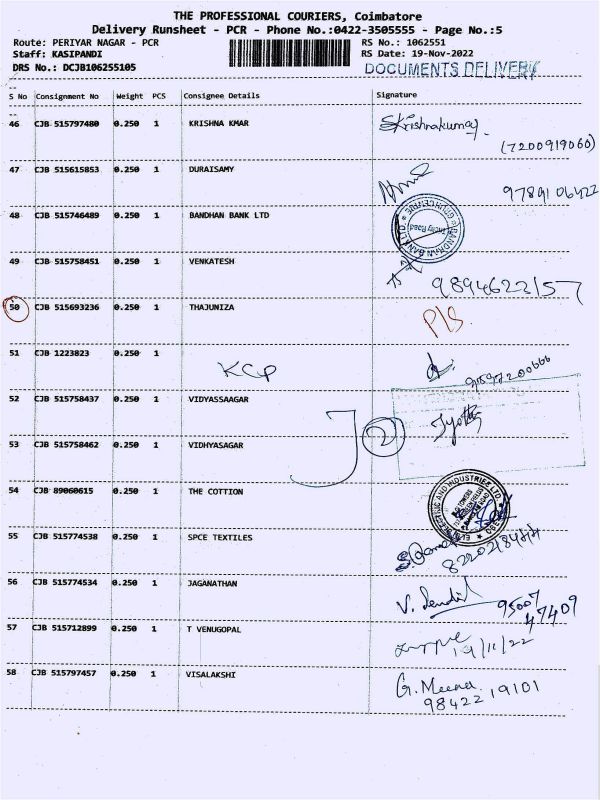 THE PROFESSIONAL COURIERS, Coimbatore
Delivery Runsheet - PCR - Phone No.:0422-3505555 - Page No.:5
Route: PERIYAR NAGAR - PCR RS No.: 1062551
Staff: KASIPANDI RS Date: 19-Nov-2022
DRS No.: DCJB106255105 DOCUMENTS DELIVERY
S No Consignment No Weight PCS Consignee Details Signature
46 CJB 515797480 0.250 1 KRISHNA KMAR Skrishnakumar
(7200919060)
47 CJB 515615853 0.250 1 DURAISAMY
9789106422
48 CJB 515746489 0.250 1 BANDHAN BANK LTD
49 CJB 515758451 0.250 1 VENKATESH
9894622157
50 CJB 515693236 0.250 1 THAJUNIZA P/S
51 CJB 1223823 0.250 1
KCP
52 CJB 515758437 0.250 1 VIDYASSAAGAR
J 2
53 CJB 515758462 0.250 1 VIDHYASAGAR
54 CJB 89060615 0.250 1 THE COTTION
55 CJB 515774538 0.250 1 SPCE TEXTILES
56 CJB 515774534 0.250 1 JAGANATHAN V. Sendil
95007
47409
57 CJB 515712899 0.250 1 T VENUGOPAL
19/11/22
58 CJB 515797457 0.250 1 VISALAKSHI G. Meena
98422 19101